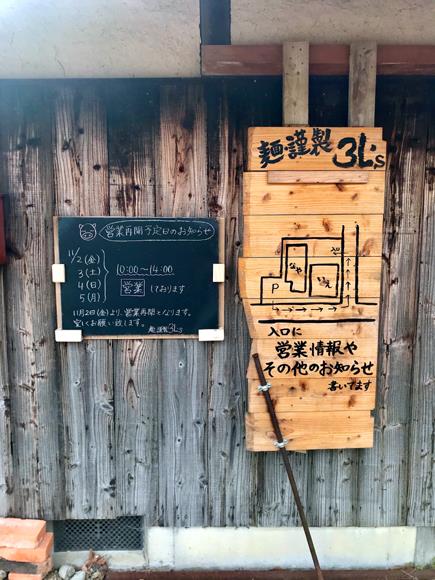 営業再開予定日のお知らせ
11/2(金)
3(土)
4(日)
5(月)
10:00～14:00
営業しております
11月2日(金)より、営業再開となります。
宜しくお願い致します。
麺謹製 3L's
麺謹製 3L's
入口
なや
いえ
P
入口に
営業情報や
その他のお知らせ
書いてます